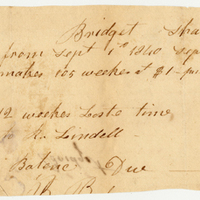 Bridget Sha
from Sept 1st 1860 Sep
makes 105 weeks at $1- pr
12 weekes Loste time
to R. Lindell -
Balenc Due